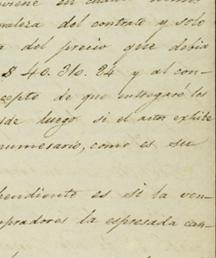 viene en cuan
naleza del contrato y solo
a del precio que debia
$ 40.310.24 y al con-
cepto de que entregará los
sde luego si el actor exhibe
numerario, como es su
pendiente es si la ven-
mpradores la espresada can-